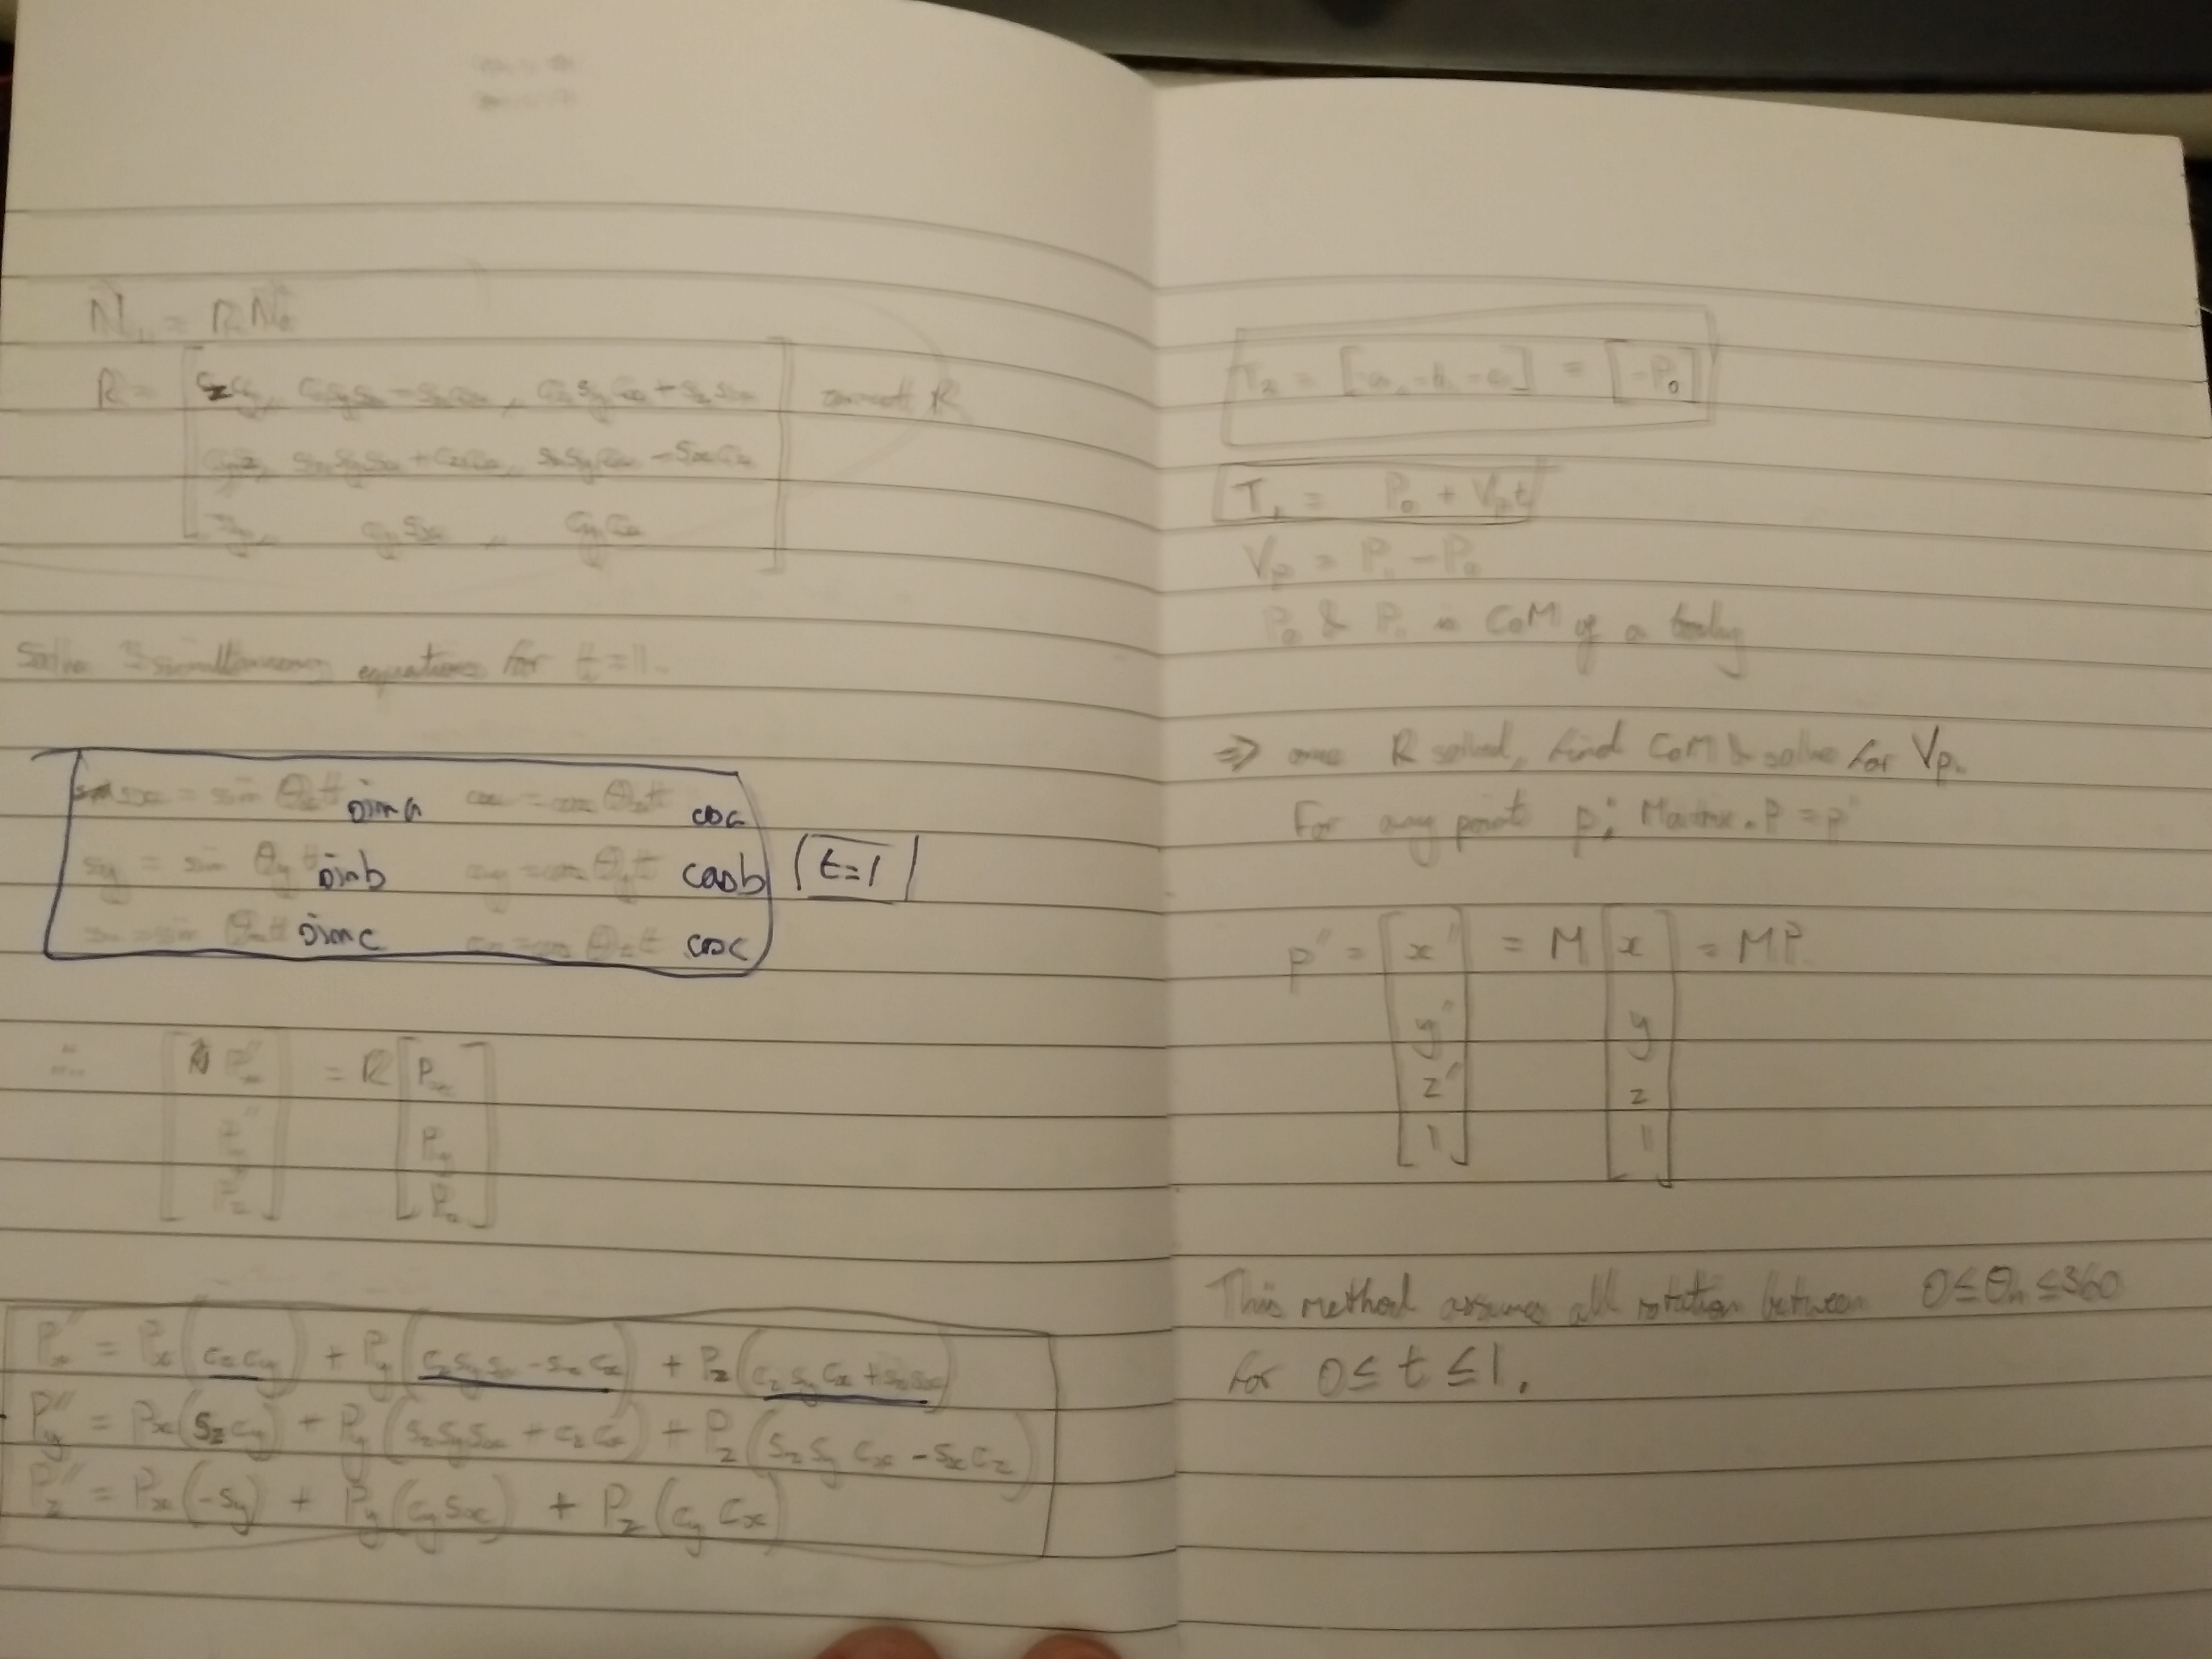 N₁ = R N₀
R = [ c_z c_y, c_z s_y s_x - s_z c_x, c_z s_y c_x + s_z s_x ] correct R
c_y s_z, s_z s_y s_x + c_z c_x, s_z s_y c_x - s_x c_z
-s_y, c_y s_x, c_y c_x
Solve 3 simultaneous equations for t=1.
sx = sin θ_x t sin a cx = cos θ_x t cos a
sy = sin θ_y t sin b cy = cos θ_y t cos b t=1
sz = sin θ_z t sin c cz = cos θ_z t cos c
∴ [ P_x'' = R [ P_x
P_y'' P_y
P_z'' ] P_z ]
P_x'' = P_x (c_z c_y) + P_y (c_z s_y s_x - s_z c_x) + P_z (c_z s_y c_x + s_z s_x)
P_y'' = P_x (s_z c_y) + P_y (s_z s_y s_x + c_z c_x) + P_z (s_z s_y c_x - s_x c_z)
P_z'' = P_x (-s_y) + P_y (c_y s_x) + P_z (c_y c_x)
T₂ = [-a, -b, -c] = [-P₀]
T₁ = P₀ + V_p t
V_p = P₁ - P₀
P₀ & P₁ is CoM of a body
⇒ once R solved, find CoM & solve for V_p.
For any point p; Matrix . P = p''
p'' = [ x'' = M [ x = MP.
y'' y
z'' z
1 ] 1 ]
This method assumes all rotation between 0 ≤ θ_n ≤ 360
for 0 ≤ t ≤ 1.